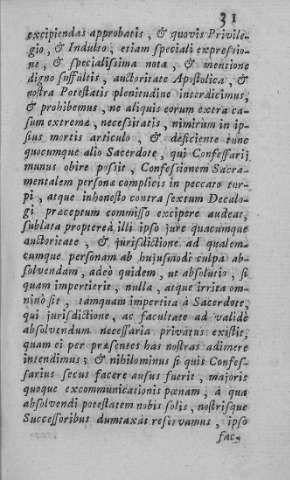 31
excipiendas approbatis, & quovis Privile-
gio, & Indulto, etiam speciali expressio-
ne, & specialissima nota, & mentione
digno suffultis, auctoritate Apostolica, &
nostra Potestatis plenitudine interdicimus,
& prohibemus, ne aliquis eorum extra ca-
sum extremæ, necessitatis, nimirum in ip-
sius mortis articulo, & deficiente tunc
quocumque alio Sacerdote, qui Confessarij
munus obire possit, Confessionem Sacra-
mentalem personæ complicis in peccato tur-
pi, atque inhonesto contra sextum Decalo-
gi præceptum commisso excipere audeat,
sublata proptereà illi ipso jure quacumque
auctoritate, & jurisdictione ad qualem-
cumque personam ab hujusmodi culpa ab-
solvendam, adeò quidem, ut absolutio, si
quam impertierit, nulla, atque irrita om-
ninò sit, tamquam impertita à Sacerdote,
qui jurisdictione, ac facultate ad validè
absolvendum necessaria privatus existit,
quam ei per præsentes has nostras adimere
intendimus; & nihilominus si quis Confes-
sarius secus facere ausus fuerit, majoris
quoque excommunicationis pœnam, à qua
absolvendi potestatem nobis solis, nostrisque
Successoribus dumtaxàt reservamus, ipso
fac-